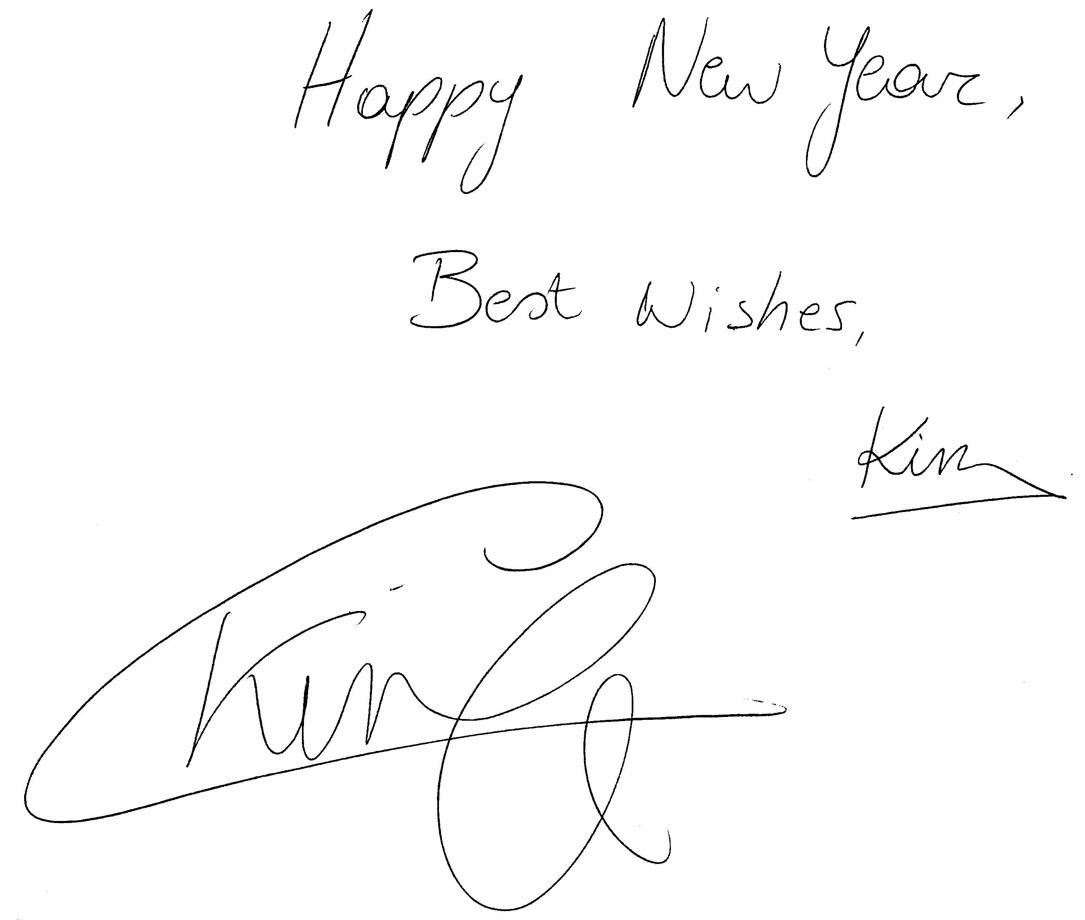 Happy New Year,
Best Wishes,
Kim
Kim